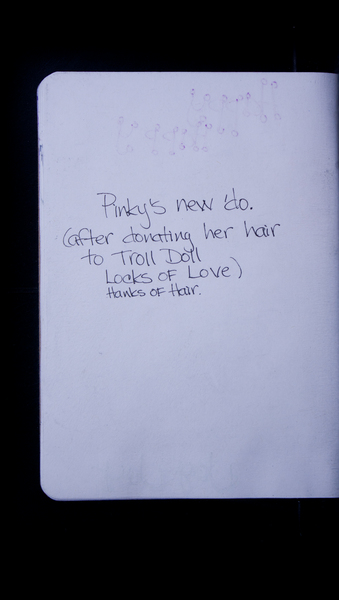 Pinky's new 'do.
(after donating her hair
to Troll Doll
Locks of Love)
Hanks of Hair.